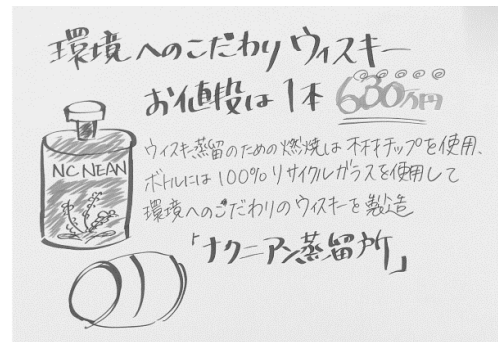 環境へのこだわりウィスキー
お値段は1本 630万円
NC NEAN
ウィスキー蒸留のための燃焼は木材チップを使用、
ボトルには100%リサイクルガラスを使用して
環境へのこだわりのウィスキーを製造
「ナクニアン蒸留所」